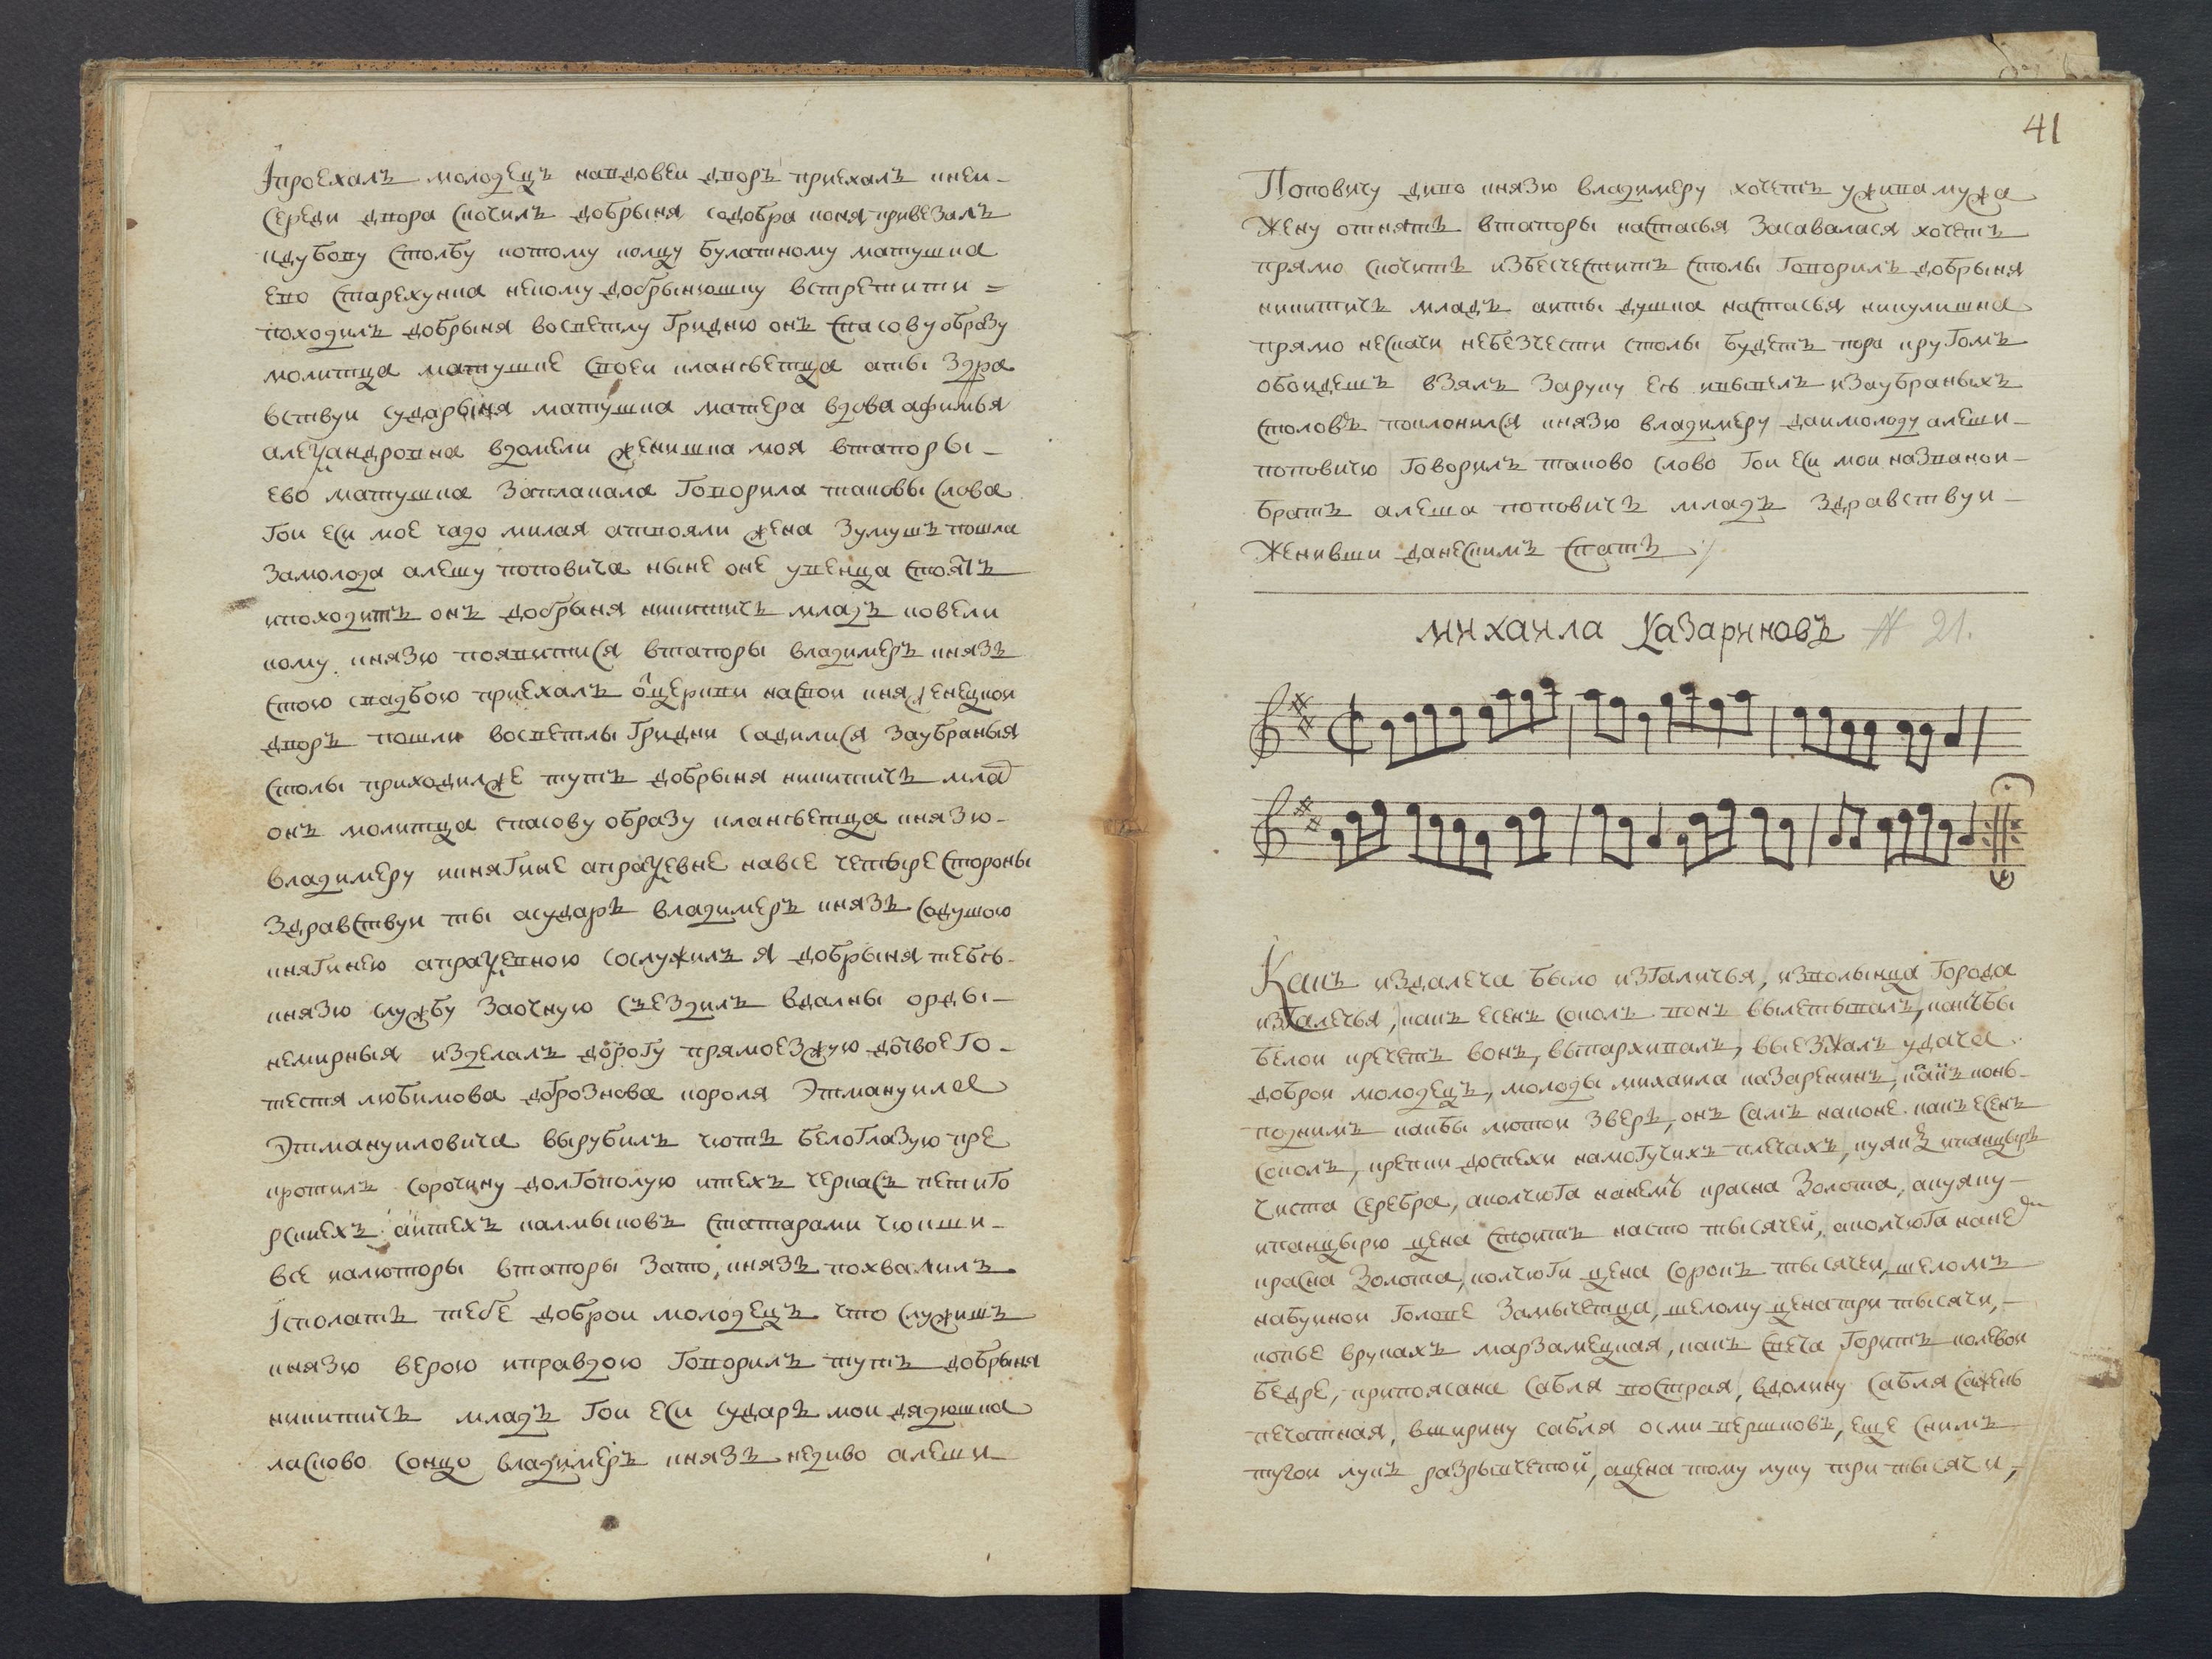 Iпроехалъ молодецъ навдовеи дворъ приехалъ кнеи
середи двора скочилъ добрыня содобра коня привезалъ
кдубову столбу котому колцу булатному матушка
ево старехунка некому добрынюшку встретити
походилъ добрыня восветлу гридню онъ спасову образу
молитца матушке своеи кланѣетца аты здра
вствуи сударыня матушка матера вдова афимья
алеѯандровна вдомели женишка моя втапоры
ево матушка заплакала говорила таковы слова
гои еси мое чадо милая атвояли жена замушъ пошла
замолода алешу поповича ныне оне увенца стоятъ
ипоходитъ онъ добрыня никитичъ младъ ковели
кому князю появитися втапоры владимеръ князь
стою свадбою приехалъ оцеркви насвои княженецкои
дворъ пошли восветлы гридни садилися заубраныя
столы приходилже тутъ добрыня никитичъ мла
онъ молитца спасову образу кланѣетца князю
владимеру икнягине апраѯевне навсе четыре стороны
здравствуи ты асударь владимеръ князь содушою
княгинею апраѯевною сослужилъ я добрыня тебѣ
князю службу заочную съездилъ вдалны орды
немирныя изделалъ дорогу прямоезжую дотвоего
тестя любимова дгрознова короля Этмануила
Этмануиловича вырубилъ чють белоглазую пре
кротилъ сорочину долгополую итехъ черкасъ петиго
рскихъ аитехъ калмыковъ статарами чюкши
все иалюторы втапоры зато, князь похвалилъ
Iсполать тебе доброи молодецъ что служишь
князю верою иправдою говорилъ тутъ добрыня
никитичъ младъ гои еси сударь мои дядюшка
ласково сонцо владимеръ князь недиво алеши
41
Поповичу диво князю владимеру хочетъ ужива мужа
Жену отнять втапоры настасья засавалася хочетъ
прямо скочить избесчестить столы говорилъ добрыня
никитичъ младъ аиты душка настасья никулишна
прямо нескачи небезчести столы будетъ пора кругомъ
обоидешъ взялъ заруку еѣ ивывелъ иззаубраныхъ
столовъ поклонился князю владимеру даимолоду алеши
поповичю говорилъ таково слово гои еси мои названои
братъ алеша поповичъ младъ здравствуи
Женивши данескимъ спать
михаила Казариновъ № 21.
Какъ издалеча было изгаличья, изволынца города
изгалечья, какъ есенъ соколъ вонъ вылетывалъ, какъбы
белои кречетъ вонъ, выпархивалъ, выезжалъ удача
доброи молодецъ, молоды михаила казаренинъ, какъ конь
поднимъ какбы лютои зверь, онъ самъ наконе какъ есенъ
соколъ, крепки доспехи намогучихъ плечахъ, куякъ ипанцырь
чиста серебра, аколчюга нанемъ красна золота, акуяку
ипанцырю цена стоитъ насто тысячеи, аколчюга нанем
красна золота, колчюги цена сорокъ тысячеи, шеломъ
набуинои голове замычетца, шелому цена три тысячи,
копье врукахъ марзамецкая, какъ свеча горитъ колевои
бедре, припоясана сабля вострая, вдолину сабля сажень
печатная, вширину сабля осми вершковъ, еще снимъ
тугои лукъ разрывчетой, ацена тому луку три тысячи,